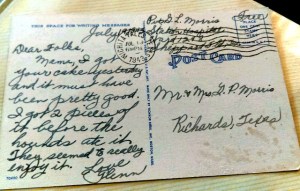 THIS SPACE FOR WRITING MESSAGES
July
Dear Folks,
Mama, I got
your cake yesterday
and it must have
been pretty good.
I got 2 pieces of
it before the
hounds ate it.
They seemed to really
enjoy it. Love
Glenn
L. Morris
Free
POST CARD
Mr & Mrs G. P. Morris
Richards, Texas